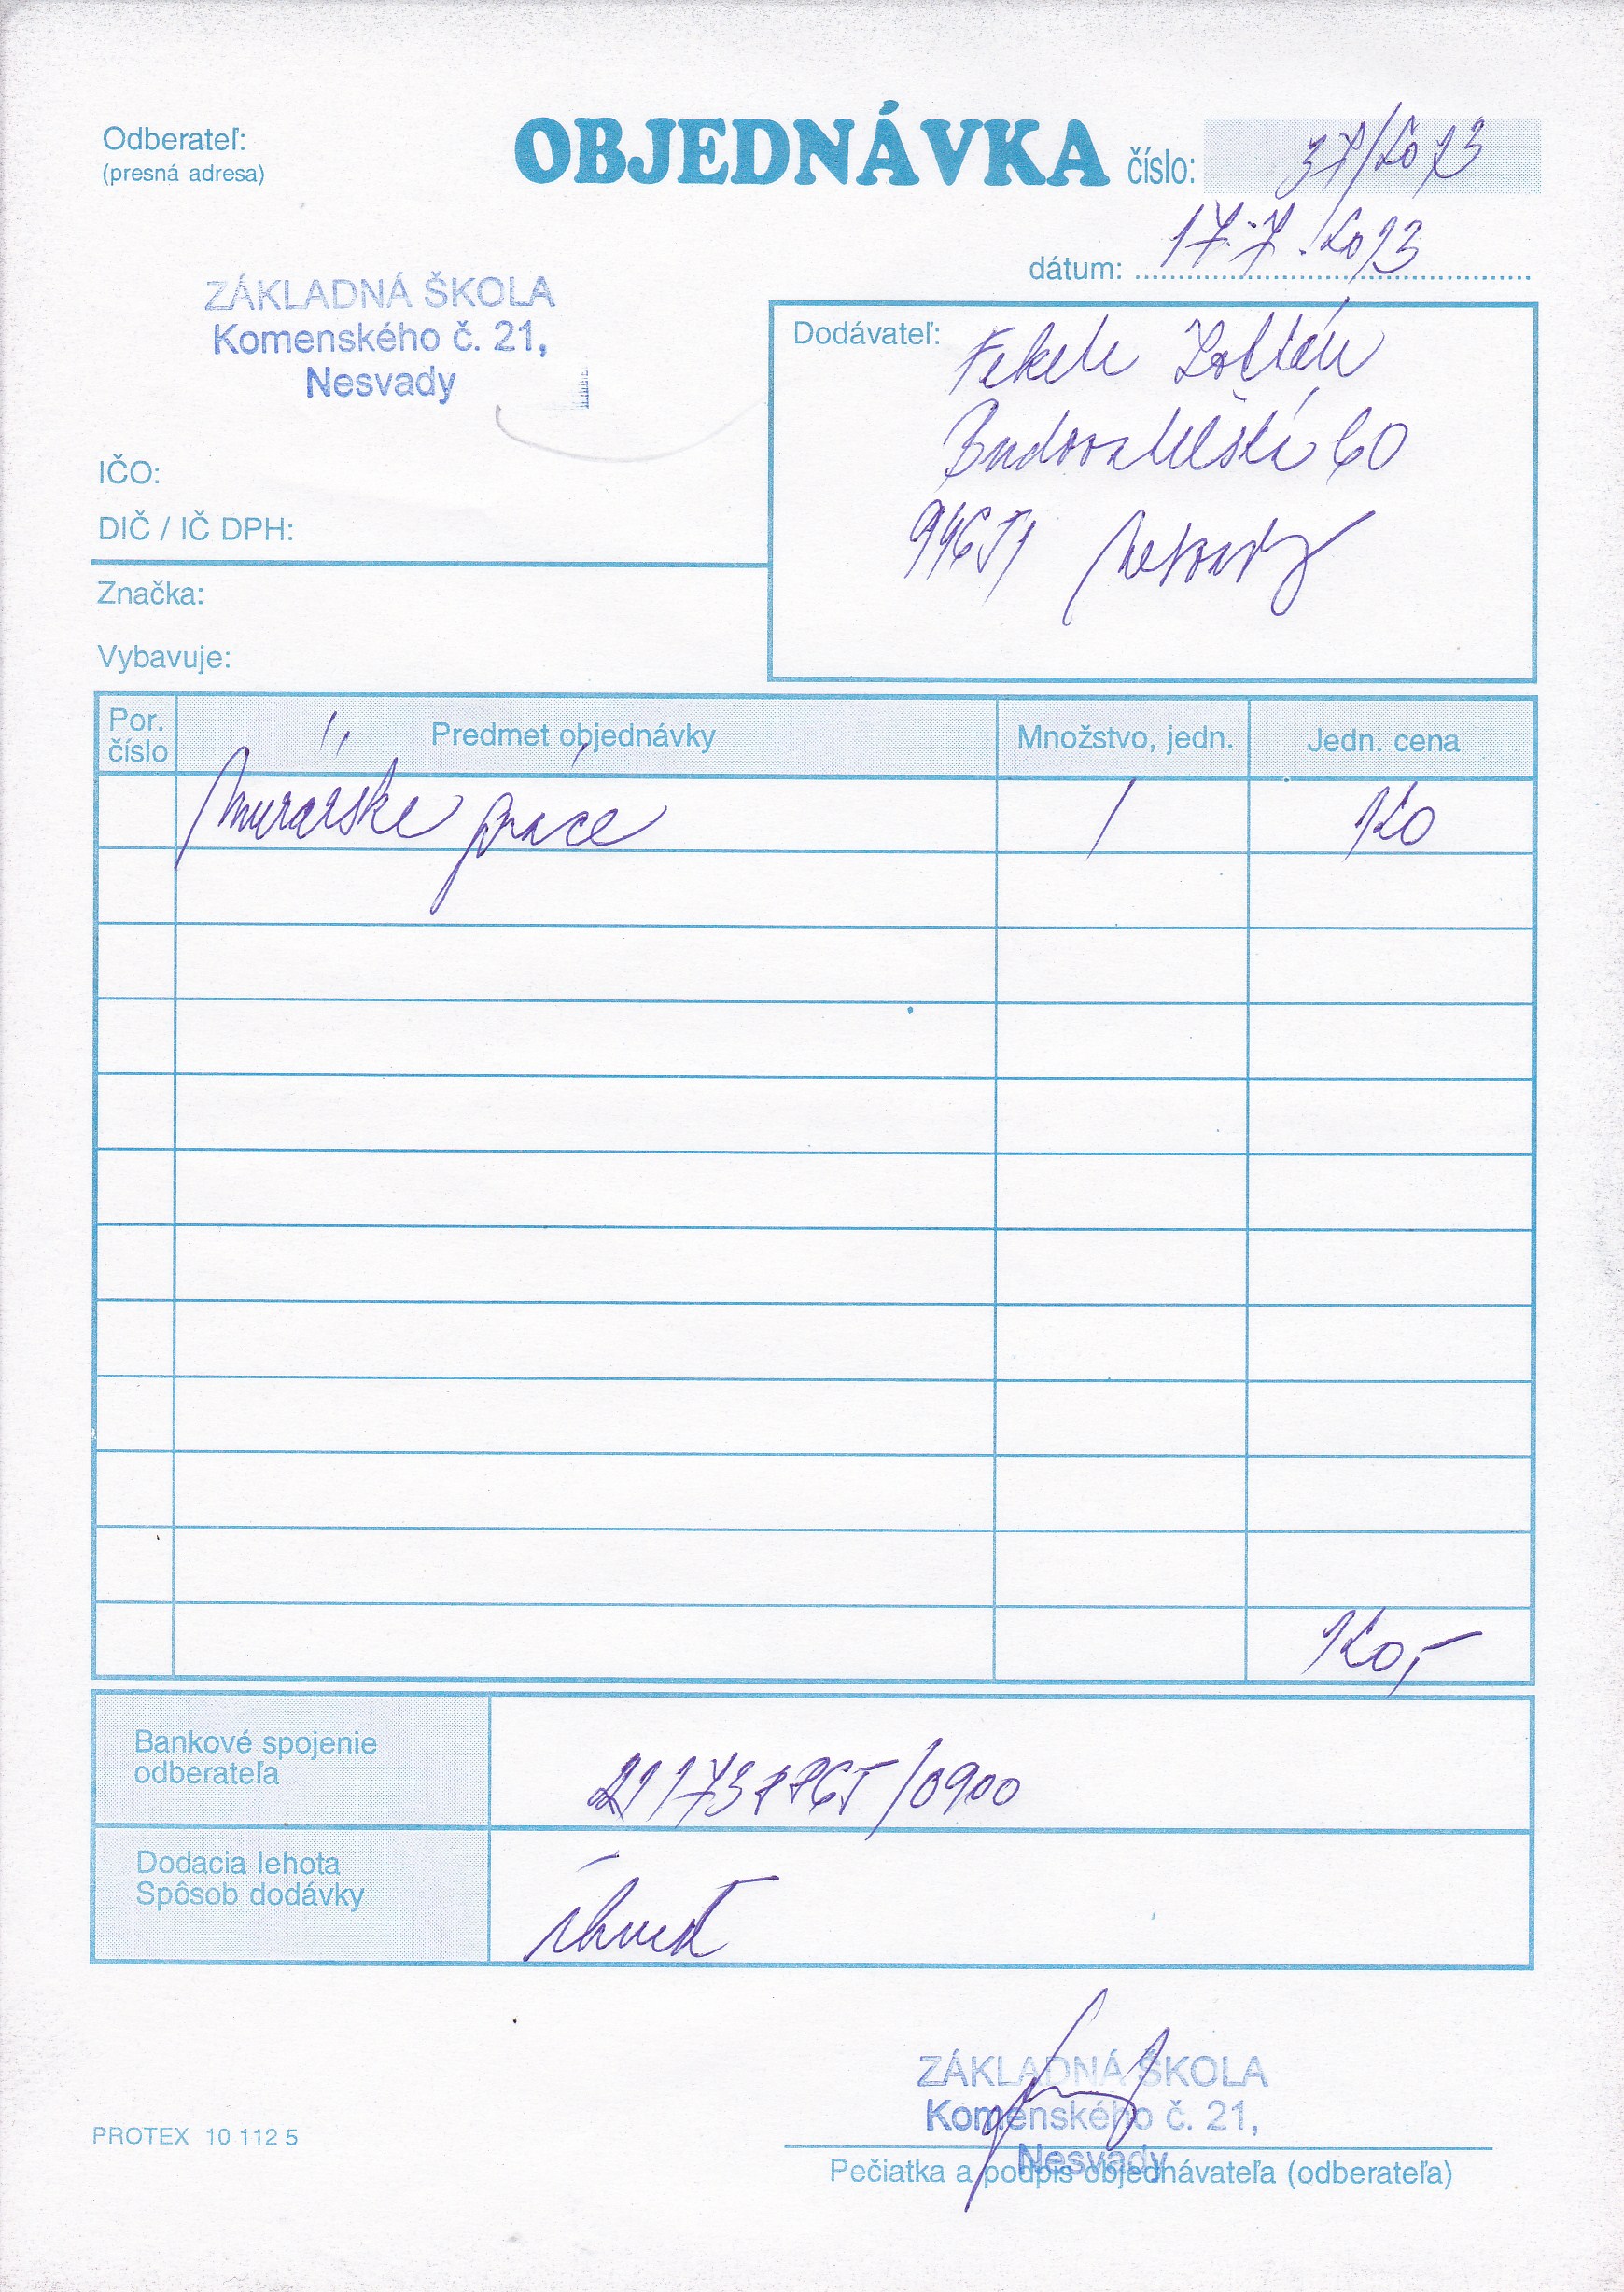 Odberateľ:
(presná adresa)
OBJEDNÁVKA číslo: 37/2013
dátum: 17.7.2013
ZÁKLADNÁ ŠKOLA
Komenského č. 21,
Nesvady
Dodávateľ: Fekete Zoltán
Budovateľská 60
94651 Nesvady
IČO:
DIČ / IČ DPH:
Značka:
Vybavuje:
Por. číslo Predmet objednávky Množstvo, jedn. Jedn. cena
Murárske práce 1 120
120,-
Bankové spojenie
odberateľa
/0900
Dodacia lehota
Spôsob dodávky
ihneď
ZÁKLADNÁ ŠKOLA
Komenského č. 21,
Nesvady
Pečiatka a podpis objednávateľa (odberateľa)
PROTEX 10 112 5